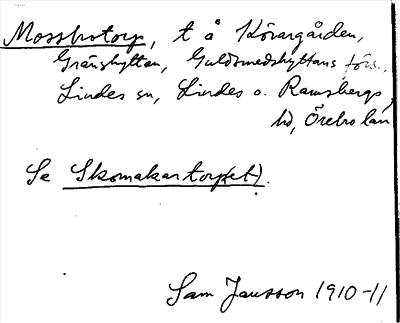 Mosshotorp, t å Körargården,
Gränshyttan, Guldsmedshyttans förs.,
Lindes sn, Lindes o. Ramsbergs
hd, Örebro län
Se Skomakartorp(et).
Sam Jansson 1910-11